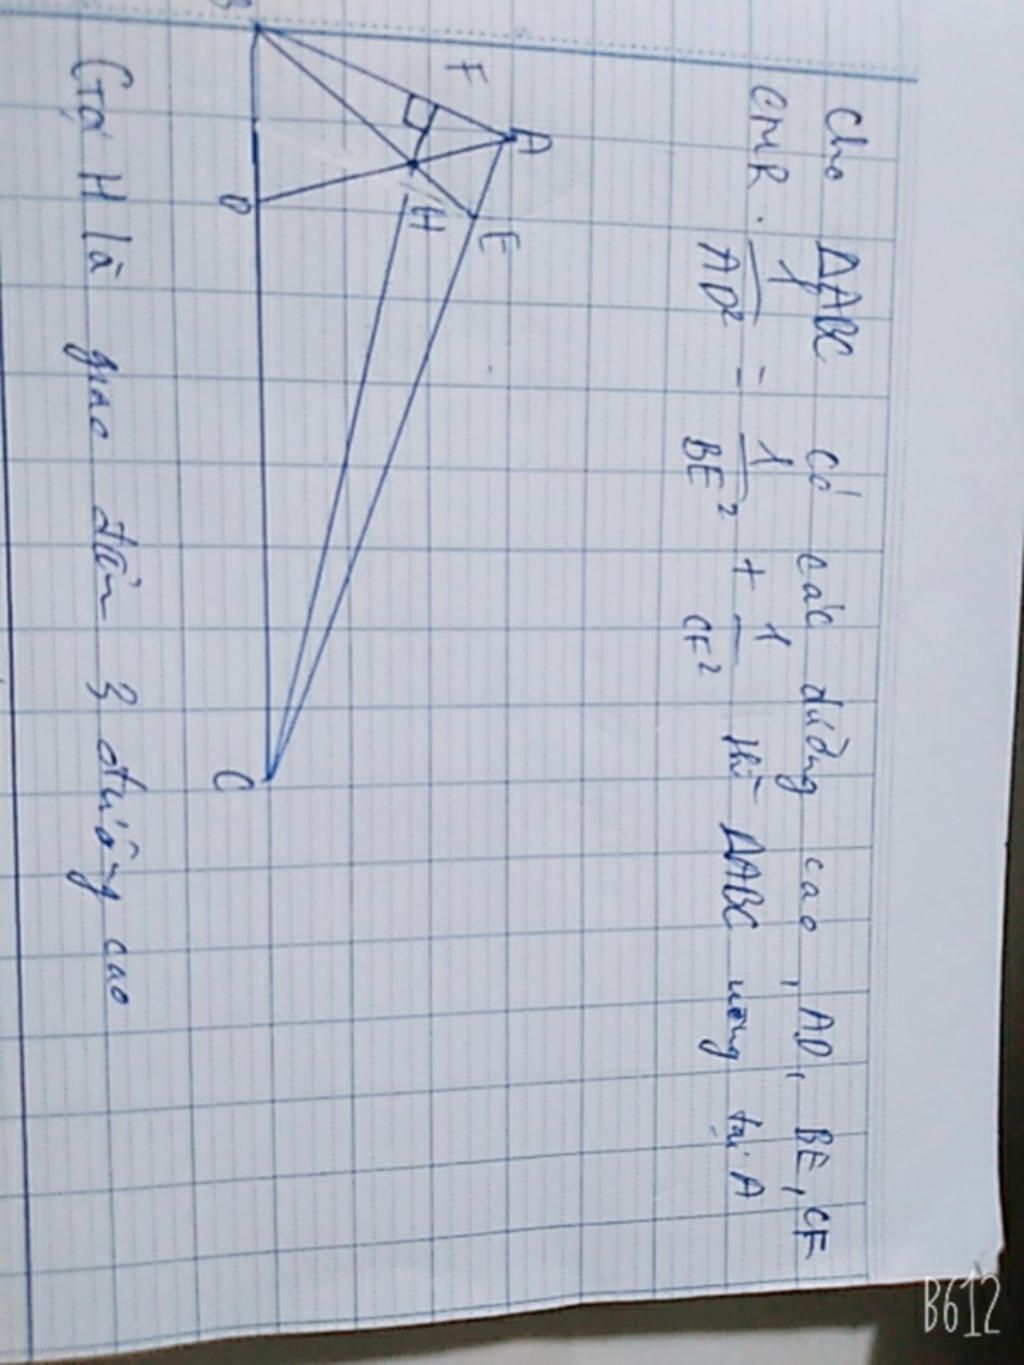 Cho ΔABC có các đường cao, AD, BE, CF
CMR. 1/AD² = 1/BE² + 1/CF² thì ΔABC vuông tại A
B
F
A
D
H
E
C
Gọi H là giao điểm 3 đường cao
B612